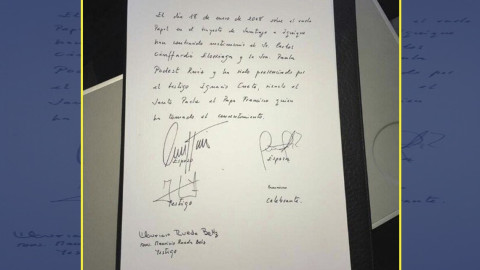 El día 18 de enero de 2018 sobre el vuelo
Papal en el trayecto de Santiago a Iquique
han contraído matrimonio de la Carlos
Ciuffardi Elorriaga y la Sra. Paula
Podest Ruiz y ha sido presenciado por
el testigo Ignacio Cueto, siendo el
Santo Padre el Papa Francisco quien
ha tomado el consentimiento.
Esposo
Esposa
Testigo
Celebrante.
Mons. Mauricio Rueda Beltz
Testigo